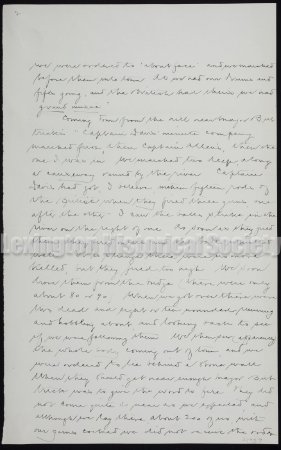 2
we were ordered to "about face" and we marched
before them into town. We had our drums and
fifes going, and the British had theirs, we had
grand music."
Coming down from the mill near Major But-
trick's "Captain Davis' minute company
marched first, then Captain Allen's, then the
one I was in. We marched two deep, along
a causeway round by the river. Captain
Davis had got, I believe, within fifteen rods of
the British when they fired three guns one
after the other. I saw the balls strike in the
river on the right of me. As soon as they fired
killed, but they fired too high. We soon
drove them from the bridge. There were only
about 80 or 90. When we got over there were
two dead and eight or ten wounded, running
and hobbling about and looking back to see
if we were following them. We then saw
the whole body coming out of town, and we
were ordered to lie behind a stone wall
When they should get near enough Major But-
trick was to give the word to fire. They did
not come quite so near as we expected and
although we lay there about 200 of us with
our guns cocked we did not receive the order
Lexington Historical Society